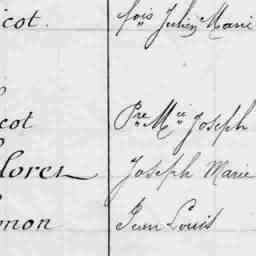 icot. fois Julien Marie
cot Pre Mie Joseph
lorel Joseph Marie
mon Jean Louis